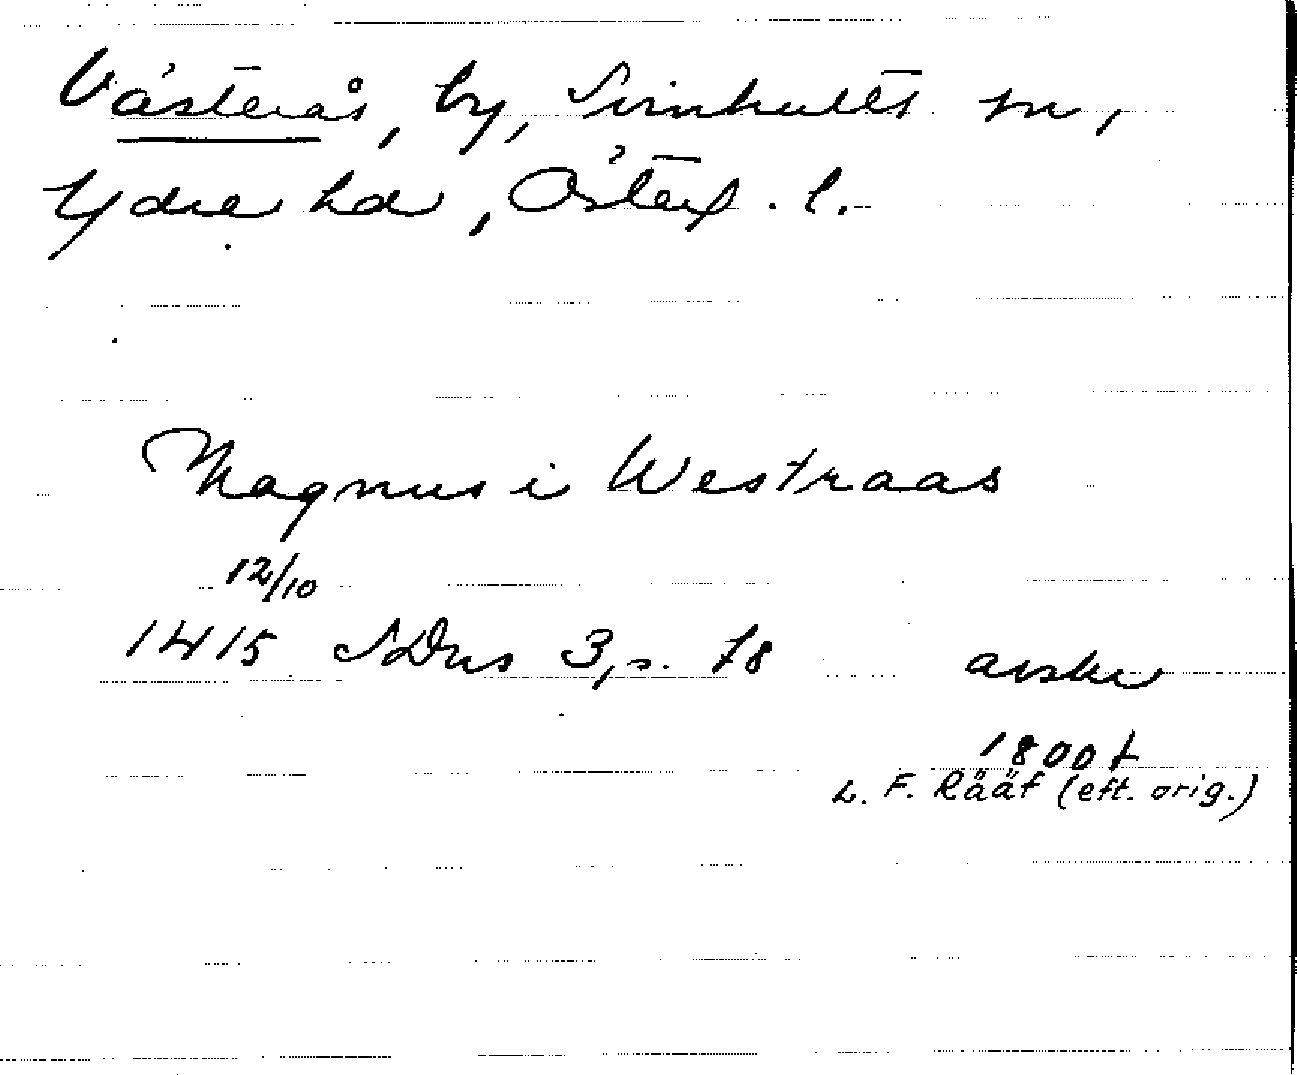 Västerås, by, Svinhults sn,
Ydre hd, Österg. l.
Magnus i Westraas
12/10
1415 SDns 3, s. 78 avskr
1800 t
L. F. Rääf (eft. orig.)